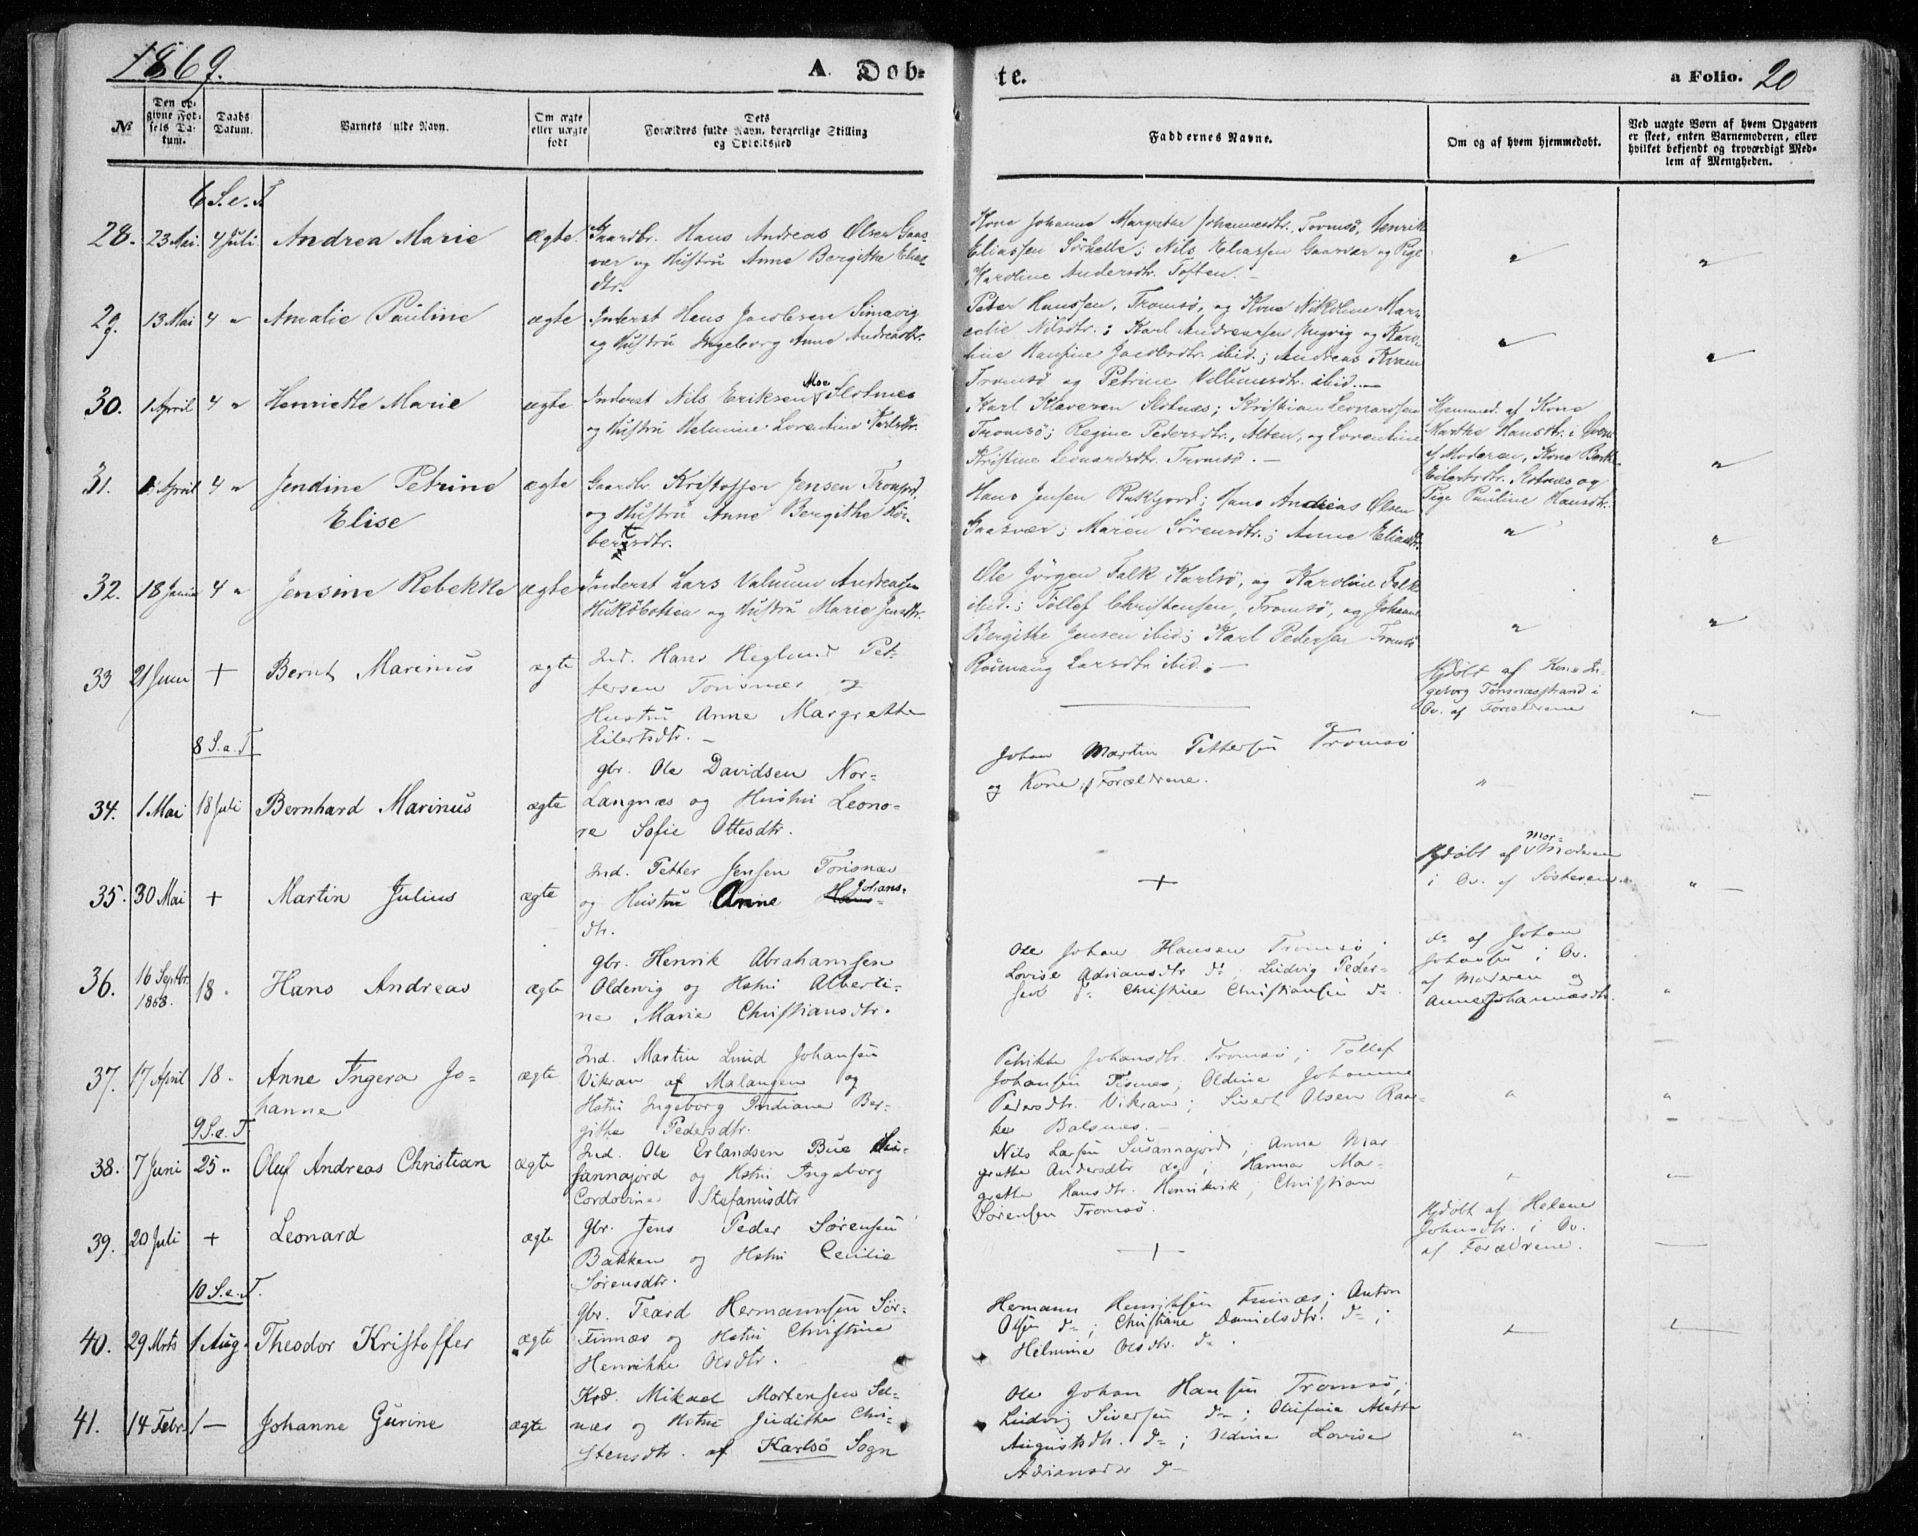 1869.
A. Døb-
te.
a Folio. 20
№
Den op-
givne Fød-
sels Da-
tum.
Daabs
Datum.
Barnets fulde Navn.
Om ægte
eller uægte
født
Dets
Forældres fulde Navn, borgerlige Stilling
og Opholdssted
Faddernes Navne.
Om og af hvem hjemmedøbt.
Ved uægte Børn af hvem Opgaven
er skeet, enten Barnemoderen, eller
hvilket bekjendt og troværdigt Med-
lem af Menigheden.
6 S. e. T.
28. 23 Mai. 4 Juli Andrea Marie ægte.
Gaardbr. Hans Andreas Olsen Gaas-
vær og Hustru Anne Bergithe Elias-
dtr.
Kone Johanna Margrethe Johannesdtr. Tromsø, Henrik
Eliassen Sørhella; Nils Eliassen Gaasvær og Pige
Karoline Andersdtr. Toften. -
29. 13 Mai 4 " Amalie Pauline ægte
Inderst Hans Jacobsen Simavig
og Hustru Ingeborg Anne Andreasdtr.
Peter Hanssen, Tromsø, og Kone Nikoline Mar-
selie Nilsdtr.; Karl Andreassen og Karo-
line Hansine Jacobsdtr. ibid.; Andreas Kvam
Tromsø og Petrine Villumsdtr. ibid. -
30. 1 April 4 " Henriette Marie ægte
Inderst Nils Eriksen Moe Slotnes
og Hustru Helmine Lorentine Karlsdtr.
Karl Klaversen Slotnæs; Kristian Leonardssen
Tromsø; Regine Pedersdtr., Alten, og Lorentine
Kristine Leonardsdtr. Tromsø. -
Hjemmed. af Kone
Marthe Hansdtr. i Overv.
af Moderen, Kone
Eilertsdtr. Slotnæs og
Pige Pauline Hansdtr.
31. April 4 " Jendine Petrine
Elise ægte
Gaardbr. Kristoffer Jensen
og Hustru Anne Bergithe Hør-
bertsdtr.
Hans Jensen Rakfjord; Hans Andreas Olsen
Gaasvær; Maren Sørensdtr.; Anne Eliasdtr.
32. 18 Januar 4 " Jensine Rebekke ægte
Inderst Lars Valnum Andreassen
og Hustru Marie Jensdtr.
Ole Jörgen Falk Karlsø, og Karoline Falk
ibid.; Tollef Christensen, Tromsø, og Johanne
Bergithe Jensen ibid; Karl Pedersen Tromsø
Larsdtr ibid. -
33 21 Juni + Bernt Marinus ægte
Ind. Hans Heglund Pet-
tersen Tonsnæs og
Hustru Anne Margrethe
Eilertsdtr. -
Hjdøbt af Kone In-
geborg Tonsnæsstrand i
Ov. af Forældrene
8 S. e. T.
34. 1 Mai 18 Juli Bernhard Marinus ægte
gbr. Ole Davidsen Nor-
Langnæs og Hustru Leono-
re Sofie Ottesdtr.
Johan Martin Pettersen Tromsø
og Kone, Forældrene.
35. 30 Mai + Martin Julius ægte
Ind. Petter Jensen Tonsnæs
og Hustru Anne Hans- Johans-
dtr.
+
Hjdøbt af Mor-Moderen
i Ov. af Søsteren
36. 16 Septbr.
1868. 18. Hans Andreas ægte
gbr. Henrik Abrahamsen
Oldervig og Hstru Alberti-
ne Marie Christiansdtr.
Ole Johan Hansen Tromsø;
Lovise Adriansdtr do; Ludvig Peder-
sen do Christine Christiansen do
do af Johan
Johansen i Ov.
af Moderen og
Anne Johannesdtr.
37. 17 April 18. Anne Ingera Jo-
hanne ægte
Ind. Martin Lund Johansen
Vikran af Malangen og
Hstru Ingeborg Indiane Ber-
githe Pedersdtr.
Johansdtr. Tromsø; Tollef
Johansen Tisnæs; Oldine Johanne
Pedersdtr. Vikran; Sivert Olsen
Balsnæs. -
9 S. e. T.
38. 7 Juni 25 " Oluf Andreas Christian ægte
Ind. Ole Erlandsen Bue Su-
sannajord og Hstru Ingeborg
Cordovine Stefanusdtr
Nils Larsen Susannajord; Anne Mar
grethe Andersdtr do; Hanna Mar-
grethe Hansdtr. Henrikvik; Christian
Sørensen Tromsø.
39. 20 Juli + Leonard ægte
gbr. Jens Peder Sørensen
Bakken og Hstru Cecilie
Sørensdtr.
+
Hjdøbt af Helene
Johnsdtr. i Ov.
af Forældrene.
10 S. e. T.
40. 29 Mrts 1 Aug. Theodor Kristoffer ægte
gbr. Teard Hermannsen Sør-
Finnæs og Hstru Christine
Henrikke Olsdtr.
Hermann Henriksen Finnæs; Anton
Olsen do; Christiane Danielsdtr. do;
Helmine Olsdtr. do.
41. 14 Febr. 1 - Johanne Gurine ægte
Mikael Mortensen Sel-
næs og Hstru Judithe Chri-
stensdtr. af Karlsø Sogn
Ole Johan Hansen Tromsø;
Ludvig Siversen do; Olufine Aletta
Augustsdtr. do; Oldine Lovise
Adriansdtr do